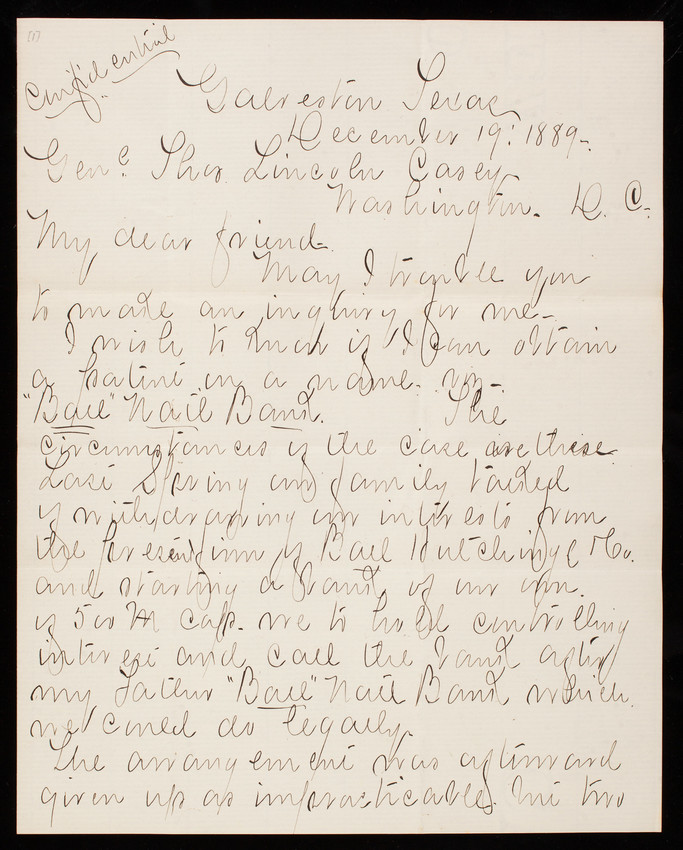 (1)
Confidential
Galveston Texas
December 19: 1889-
Genl. Thos. Lincoln Casey
Washington. D. C.
My dear friend-
May I trouble you
to make an inquiry for me-
I wish to know if I can obtain
a patent on a name. viz-
"Ball" Natl Bank. The
circumstances of the case are these
Last Spring our family talked
of withdrawing our interests from
the present firm of Ball Hutchings & Co.
and starting a bank of our own.
of 500 M cap. we to hold controlling
interest and call the bank after
my father "Ball" Natl Bank which
we could do legally.
The arrangement was afterward
given up as impracticable. two